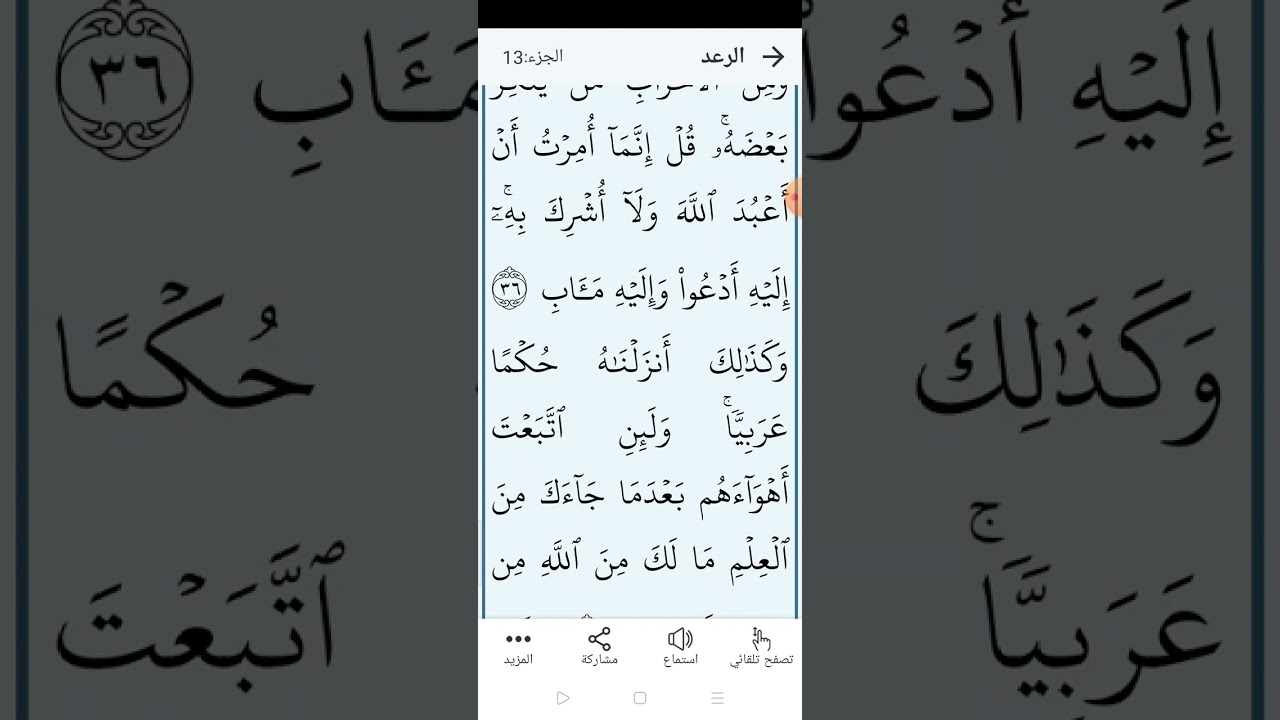 الرعد
الجزء:13
بَعْضَهُۥ ۚ قُلْ إِنَّمَآ أُمِرْتُ أَنْ
أَعْبُدَ ٱللَّهَ وَلَآ أُشْرِكَ بِهِۦٓ ۚ
إِلَيْهِ أَدْعُوا۟ وَإِلَيْهِ مَـَٔابِ ٣٦
وَكَذَٰلِكَ أَنزَلْنَـٰهُ حُكْمًا
عَرَبِيًّا ۚ وَلَئِنِ ٱتَّبَعْتَ
أَهْوَآءَهُم بَعْدَمَا جَآءَكَ مِنَ
ٱلْعِلْمِ مَا لَكَ مِنَ ٱللَّهِ مِن
تصفح تلقائي
استماع
مشاركة
المزيد